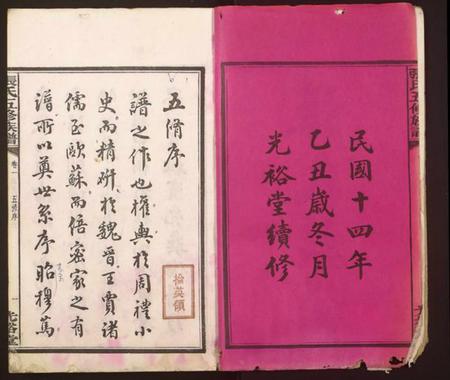 民國十四年
乙丑歲冬月
光裕堂續修
張氏五修族譜
五脩序
譜之作也權輿於周禮小
史而精研於魏晉王賈諸
儒至歐蘇而倍密家之有
譜所以奠世系序昭穆篤
張氏五修族譜
卷一
五修序
一
光裕堂